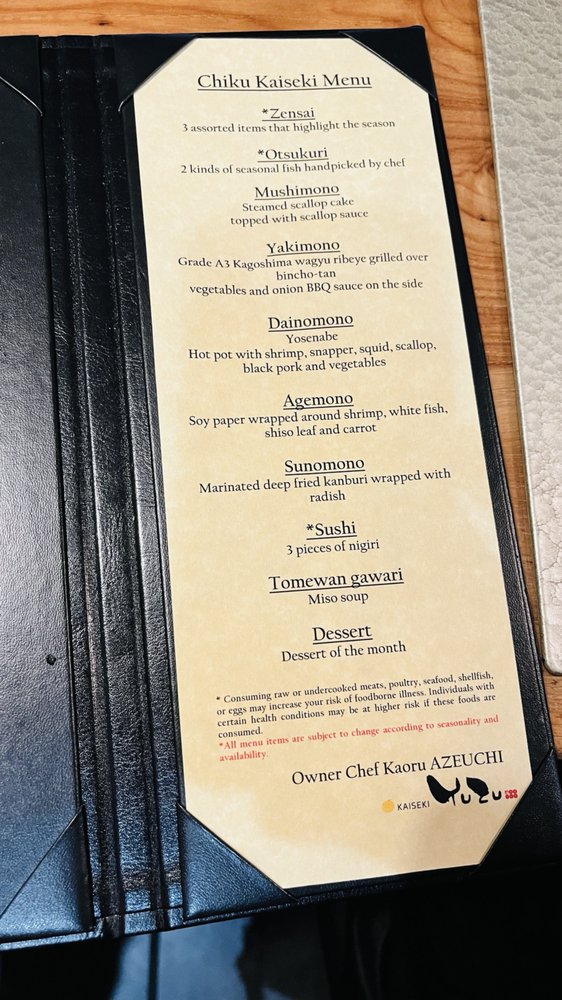 Chiku Kaiseki Menu
*Zensai
3 assorted items that highlight the season
*Otsukuri
2 kinds of seasonal fish handpicked by chef
Mushimono
Steamed scallop cake
topped with scallop sauce
Yakimono
Grade A3 Kagoshima wagyu ribeye grilled over
bincho-tan
vegetables and onion BBQ sauce on the side
Dainomono
Yosenabe
Hot pot with shrimp, snapper, squid, scallop,
black pork and vegetables
Agemono
Soy paper wrapped around shrimp, white fish,
shiso leaf and carrot
Sunomono
Marinated deep fried kanburi wrapped with
radish
*Sushi
3 pieces of nigiri
Tomewan gawari
Miso soup
Dessert
Dessert of the month
* Consuming raw or undercooked meats, poultry, seafood, shellfish,
or eggs may increase your risk of foodborne illness. Individuals with
certain health conditions may be at higher risk if these foods are
consumed.
*All menu items are subject to change according to seasonality and
availability.
Owner Chef Kaoru AZEUCHI
KAISEKI Yuzu